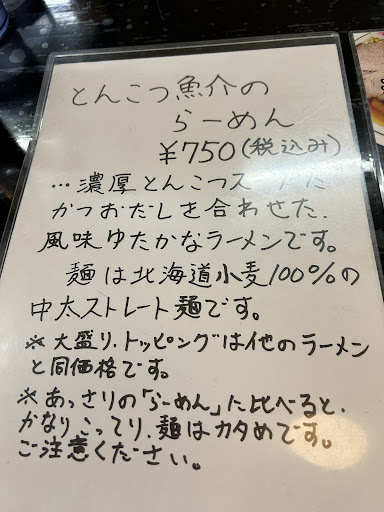 とんこつ魚介の
らーめん
¥750(税込み)
…濃厚とんこつス
かつおだしを合わせた、
風味ゆたかなラーメンです。
麺は北海道小麦100%の
中太ストレート麺です。
※大盛り、トッピングは他のラーメン
と同価格です。
※あっさりの「らーめん」に比べると、
かなりこってり、麺はカタめです。
ご注意ください。